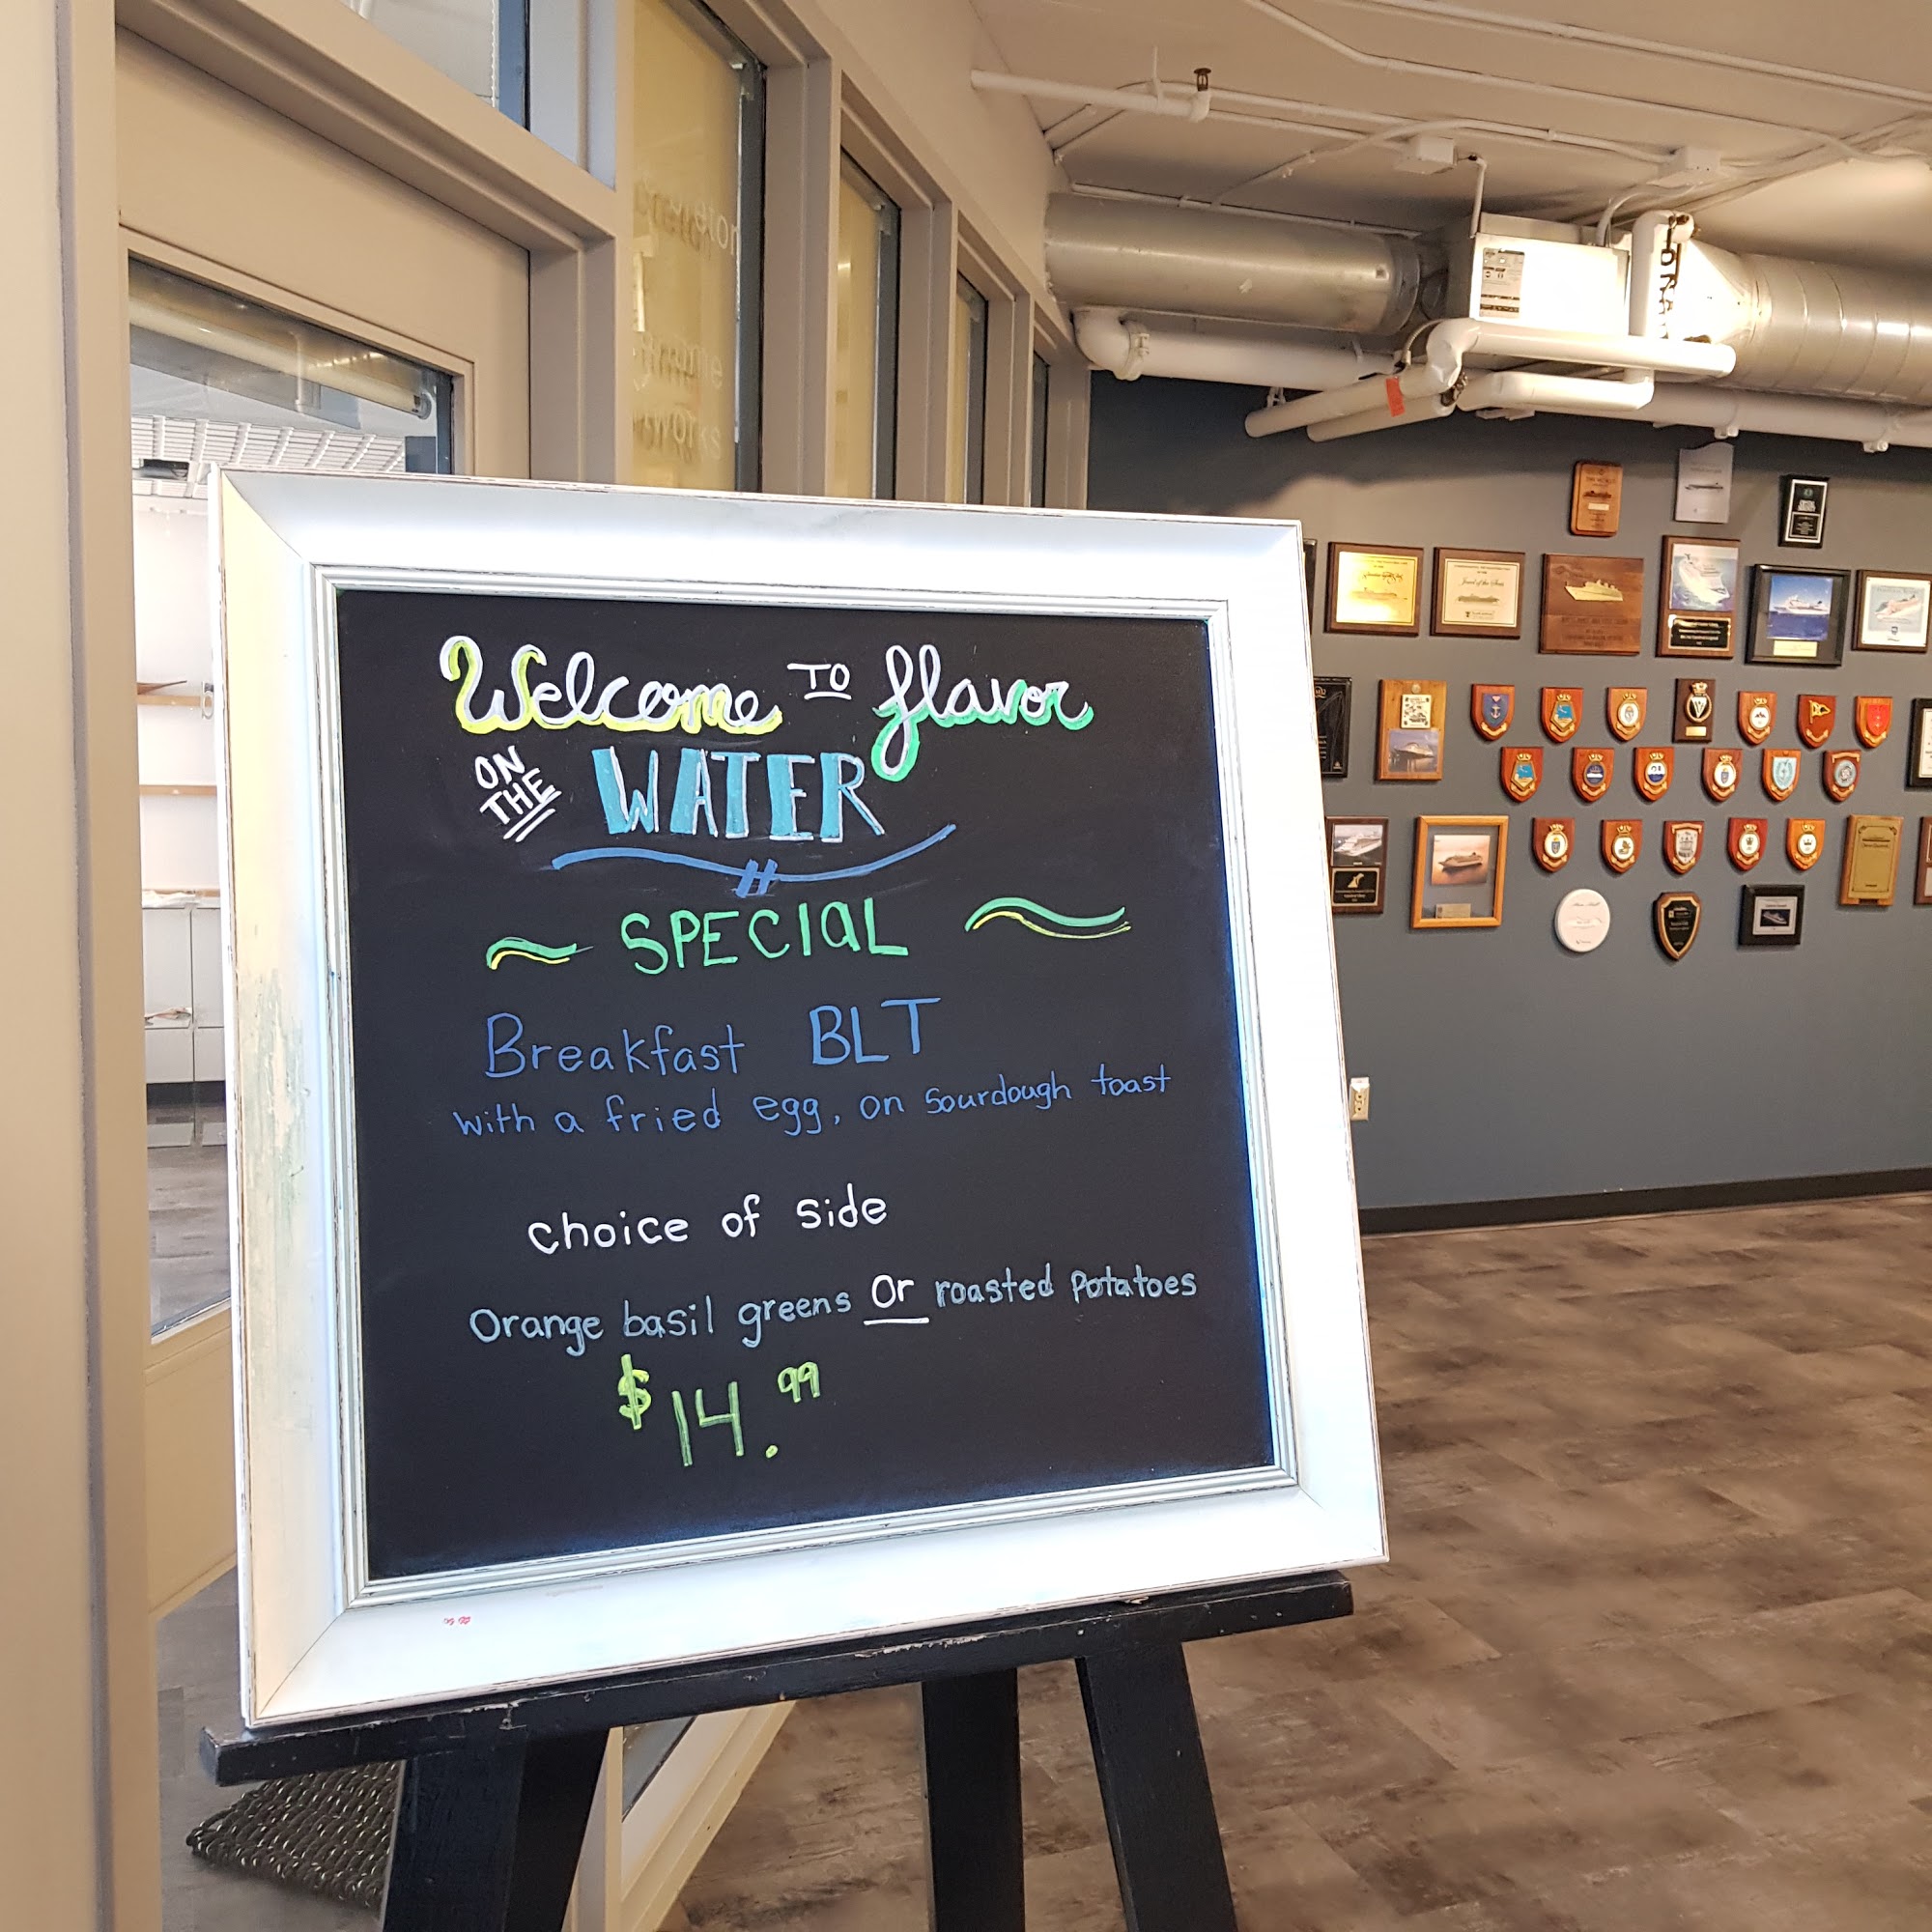 Welcome TO flavor
ON THE WATER
SPECIAL
Breakfast BLT
with a fried egg, on Sourdough toast
choice of side
Orange basil greens Or roasted Potatoes
$14.99